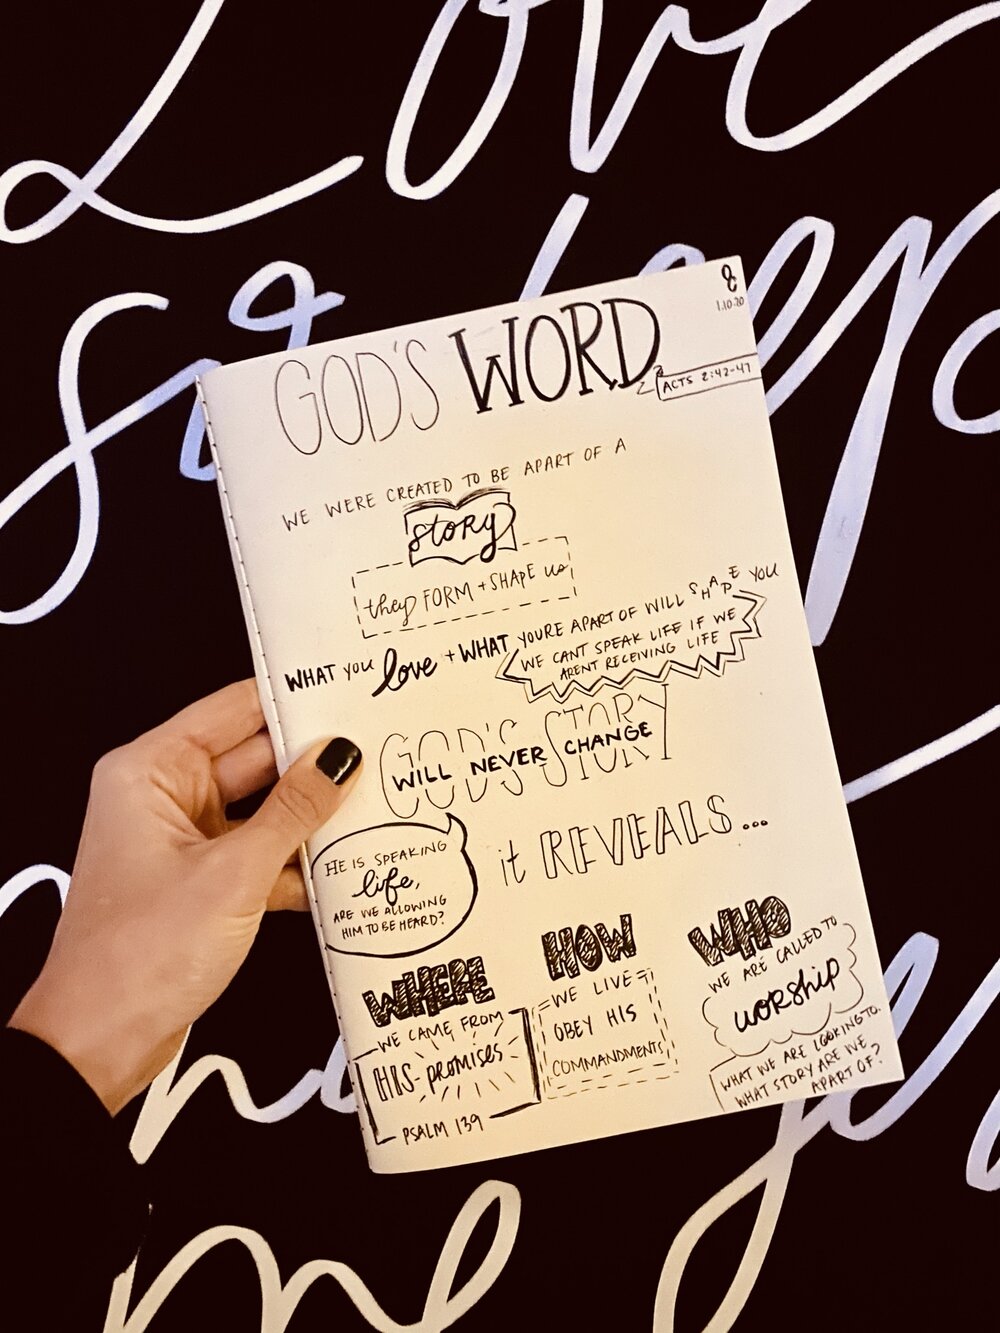 Love
so deep
&
1.10.20
GOD'S WORD
ACTS 2:42-47
WE WERE CREATED TO BE APART OF A
story
they FORM + SHAPE us
WHAT YOU love + WHAT YOURE APART OF WILL SHAPE YOU
WE CANT SPEAK LIFE IF WE
ARENT RECEIVING LIFE
GOD'S STORY
WILL NEVER CHANGE
it REVEALS...
HE IS SPEAKING
life,
ARE WE ALLOWING
HIM TO BE HEARD?
WHERE
WE CAME FROM
HIS promises
PSALM 139
HOW
WE LIVE
OBEY HIS
COMMANDMENTS
WHO
WE ARE CALLED TO
worship
WHAT WE ARE LOOKING TO.
WHAT STORY ARE WE
APART OF?
me